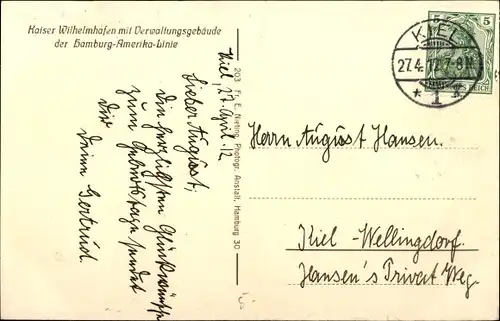 Kaiser Wilhelmhafen mit Verwaltungsgebäude
der Hamburg-Amerika-Linie
Kiel, 27. April. 12
Lieber August,
die herzlichsten Glückwünsche
zum Geburtstage sendet
dir
deine Gertrud.
203 Fr. E. Nieting, Photogr. Anstalt, Hamburg 30
KIEL
27.4.12.7-8N
* 1 *
5
DEUTSCHES REICH
Herrn August Hansen.
Kiel-Wellingdorf.
Hansen's Privat Weg.